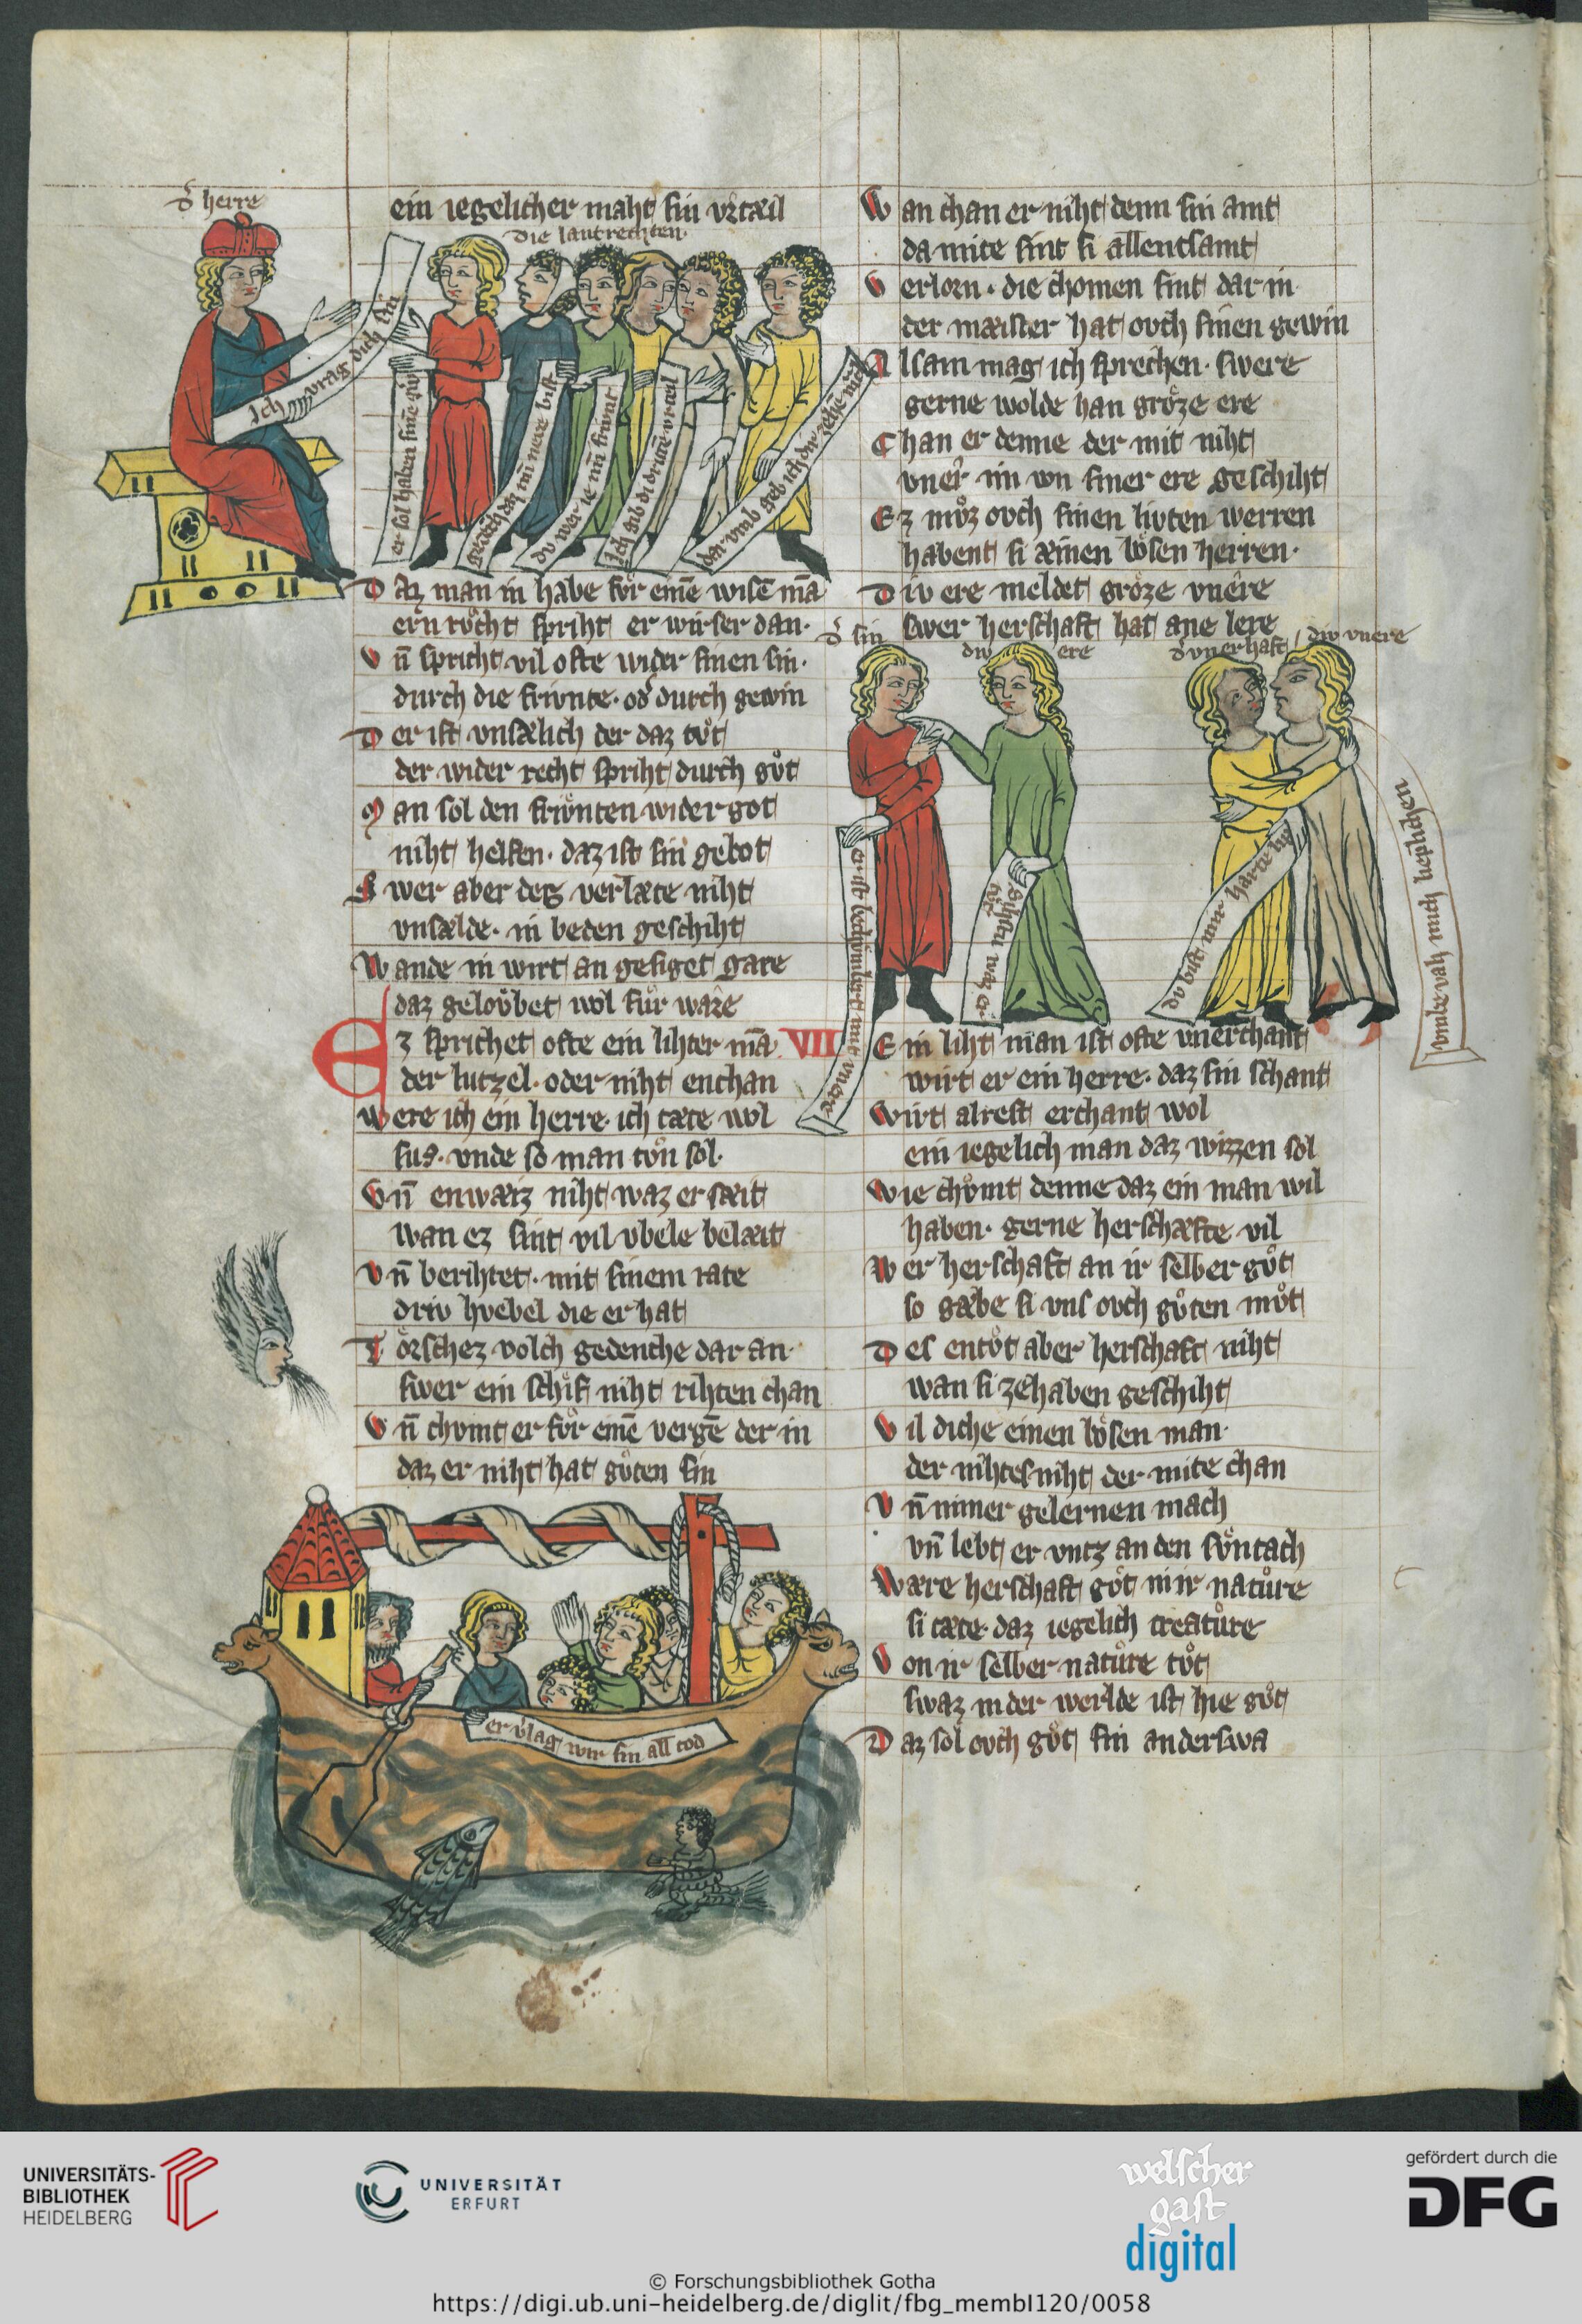 d͛ herre
ein iegelicher maht sin vrtæil
die lantrechten.
Ich vrag dich
er sol haben
dv wer ie min frivnt
Ich gib di dritte vrtæil
dar vmb geb ich dir zehen
Daz man in habe fvͦr eine wise ma
ern rvͦcht spriht er wirser dan.
vn̄ spricht vil ofte wider sinen sin.
durch die frivnte. od͛ durch gewin
Der ist vnsælich der daz tvͦt
der wider recht spriht durch gvͦt
Man sol den frivnten wider got
niht helfen. daz ist sin gebot
Swer aber des verlæte niht
vnsælde. in beden geschiht
Wande in wirt an gesiget gare
daz gelovbet wol fur ware
Ez sprichet ofte ein lihter ma̅ VII
der lutzel. oder niht enchan
were ich ein herre. ich tæte wol
sus. vnde so man tvͦn sol.
vn̄ enwæiz niht waz er sæit
wan ez sint vil vbele belæit
vn̄ berihtet. mit sinem rate
driv hvebel die er hat
Tŏrschez volch gedenche dar an.
swer ein schif niht rihten chan
vn̄ chvmt er fvͦr eine verge̅ der in
daz er niht hat gvͦten sin
er vlag wir sin all tod
Wan chan er niht denn sin amt
da mite sint si allentsamt
verlorn. die chomen sint dar in.
der mæister hat ovch sinen gewin
Alsam mag ich sprechen. swere
gerne wolde han grŏze ere
Chan er denne der mit niht
vner im von siner ere geschiht
Ez mvͦz ovch sinen livten werren
habent si æinen bŏsen herren.
Div ere meldet grŏze vnere
swer herschaft hat ane lere
d͛ sin
div ere
d͛ vnerhaft
div vnere
er ist bechvmbert mit vnere
Sihstu waz er
dv bist mir harte lip
vmbe vah mich lieplichen
Ein liht man ist ofte vnerchant
wirt er ein herre. daz sin schant
wirt alrest erchant wol
ein iegelich man daz wizzen sol
wie chvͦmt denne daz ein man wil
haben. gerne herschæfte vil
Wer herschaft an ir selber gvͦt
so gæbe si vns ovch gvͦten mvͦt
Des entvͦt aber herschaft niht
wan si zehaben geschiht
Vil diche einen bŏsen man.
der nihtesniht der mite chan
vn̄ nimer gelernen mach
vn̄ lebt er vntz an den svͦntach
Wære herschaft gvͦt in ir natvͦre
si tæte. daz iegelich creatvͦre
Von ir selber natvͦre tvͦt
swaz in der werlde ist hie gvͦt
Daz sol ovch gvͦt sin anderswa
UNIVERSITÄTS-
BIBLIOTHEK
HEIDELBERG
UNIVERSITÄT
ERFURT
welscher
gast
digital
gefördert durch die
DFG
© Forschungsbibliothek Gotha
https://digi.ub.uni-heidelberg.de/diglit/fbg_membI120/0058